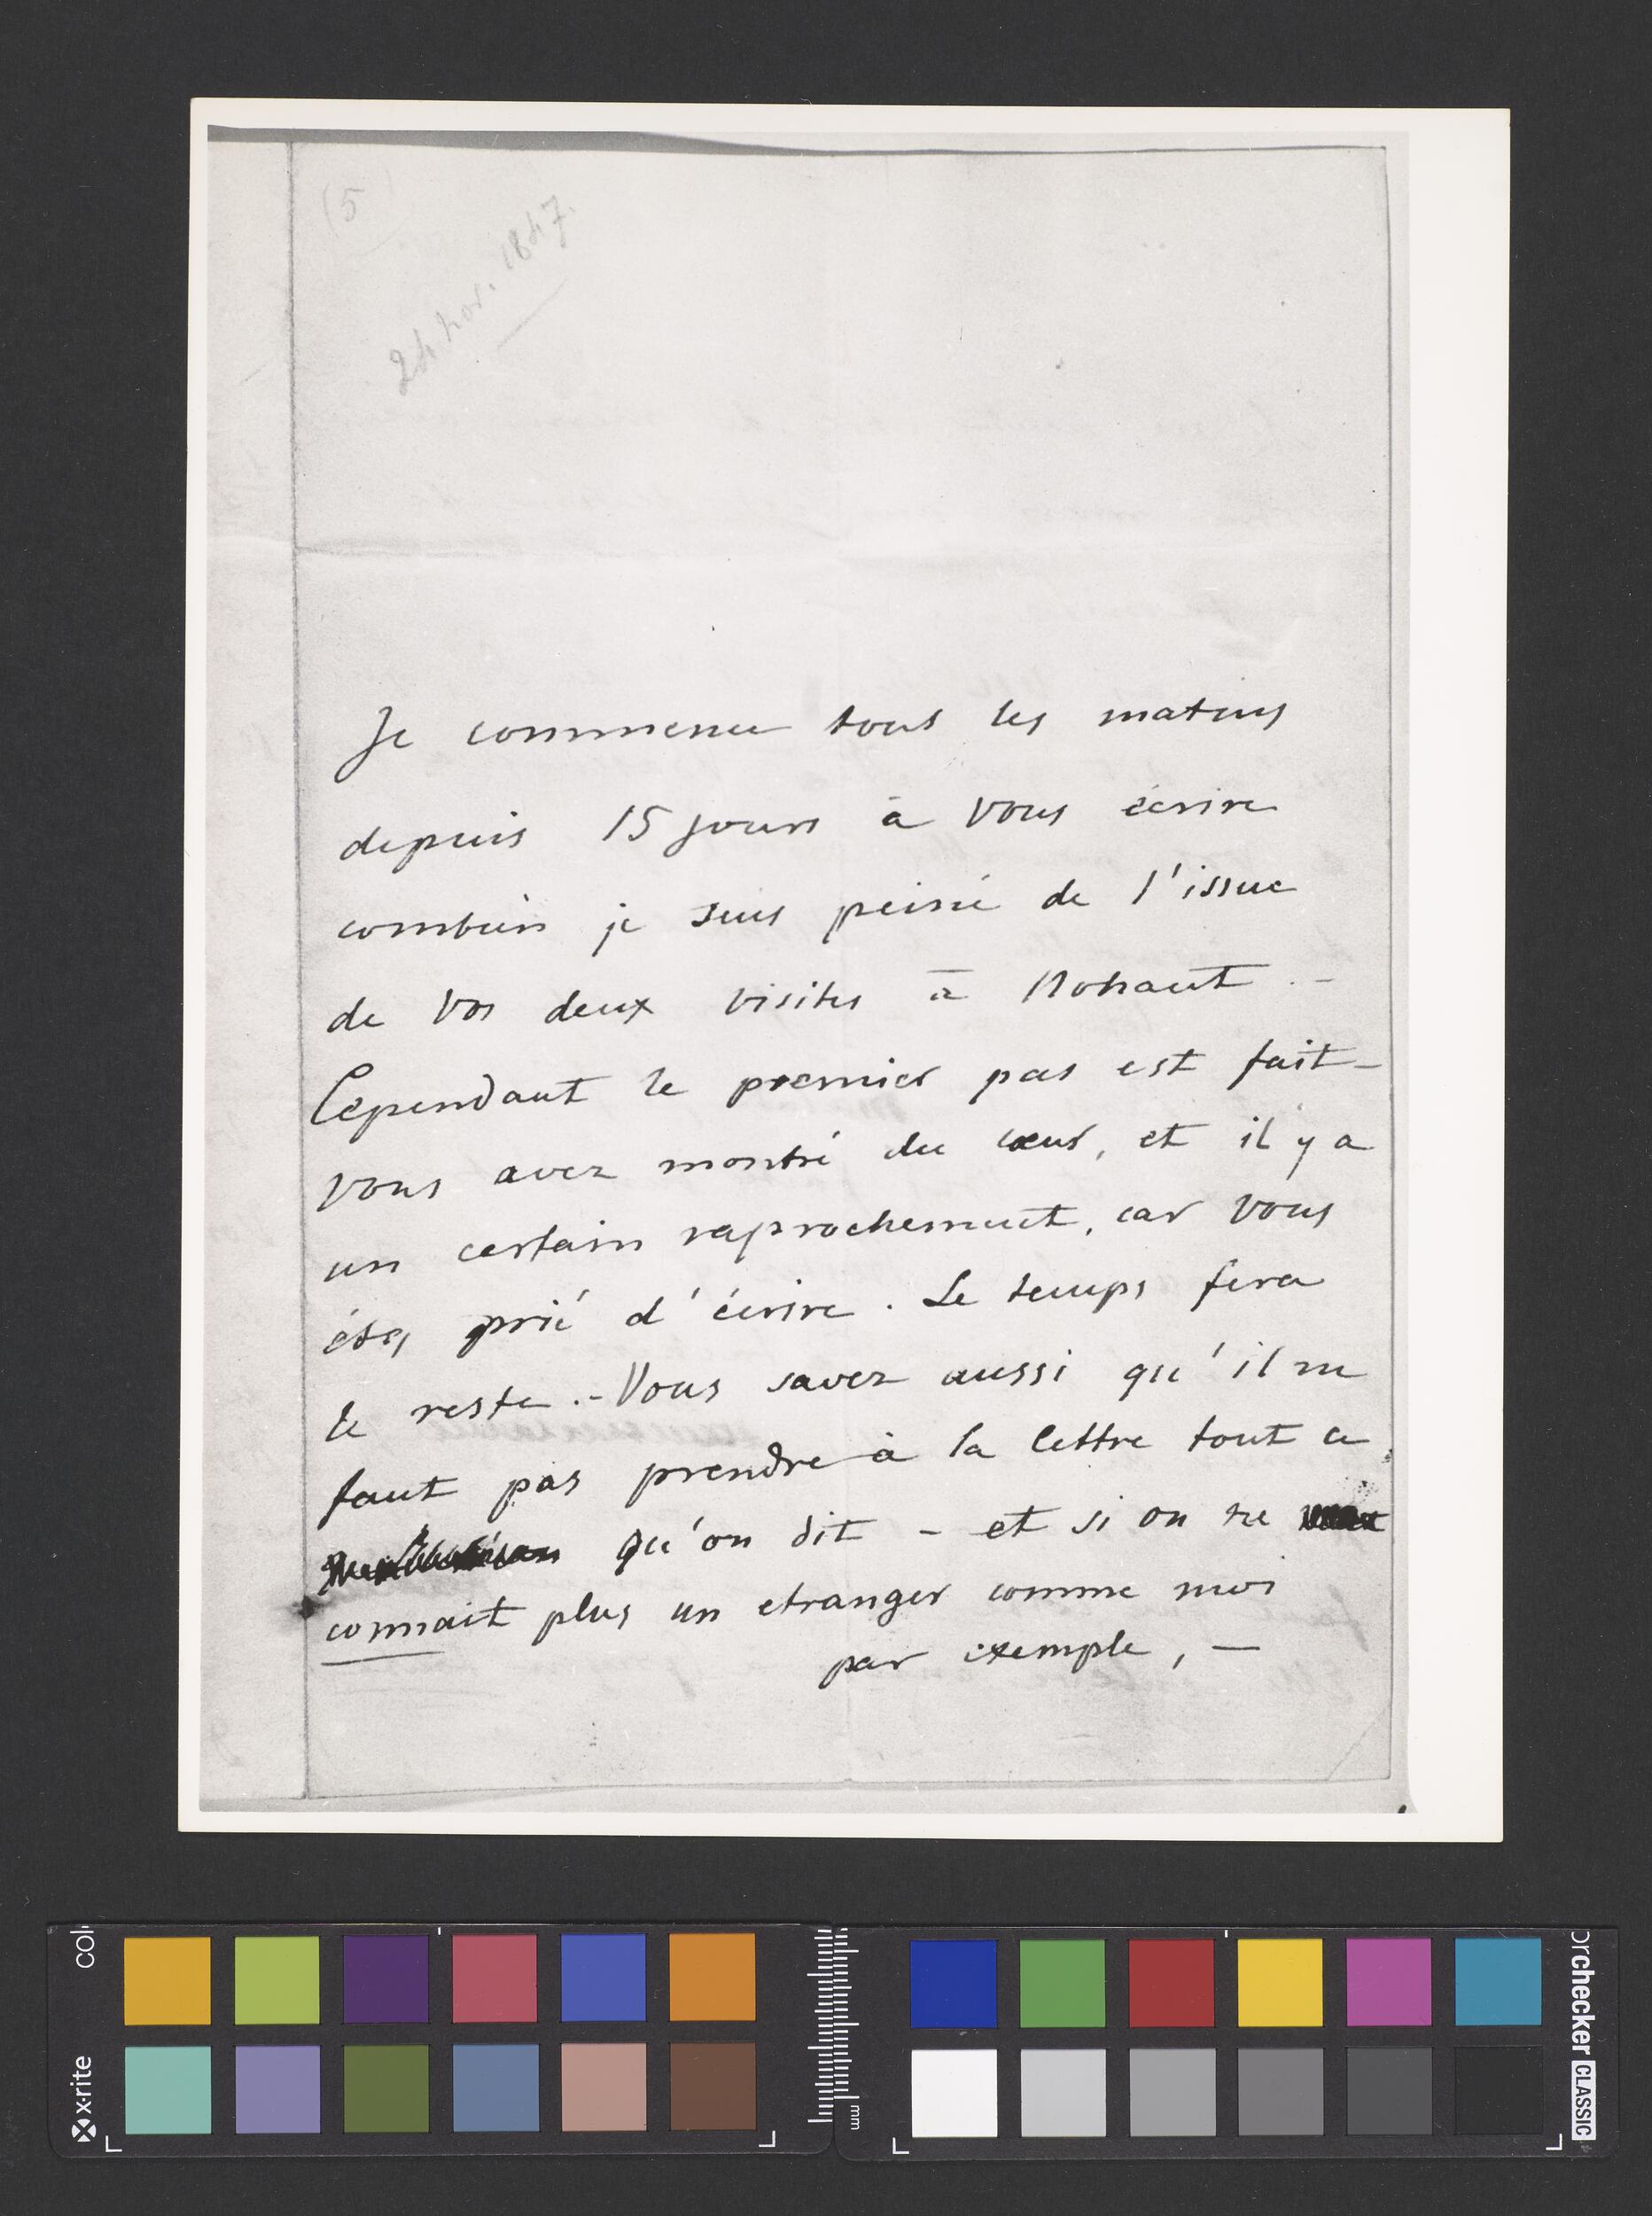 (5
24 nov. 1847.
Je commence tous les matins
depuis 15 jours à vous écrire
combien je suis peiné de l'issue
de vos deux visites à Nohant. -
Cependant le premier pas est fait -
vous avez montré du cœur, et il y a
un certain raprochement, car vous
étes prié d'écrire. Le temps fera
le reste. - Vous savez aussi qu'il ne
faut pas prendre à la lettre tout ce
qu'on dit - et si on ne
connait plus un etranger comme moi
par exemple, —
x·rite
col
mm
orchecker CLASSIC